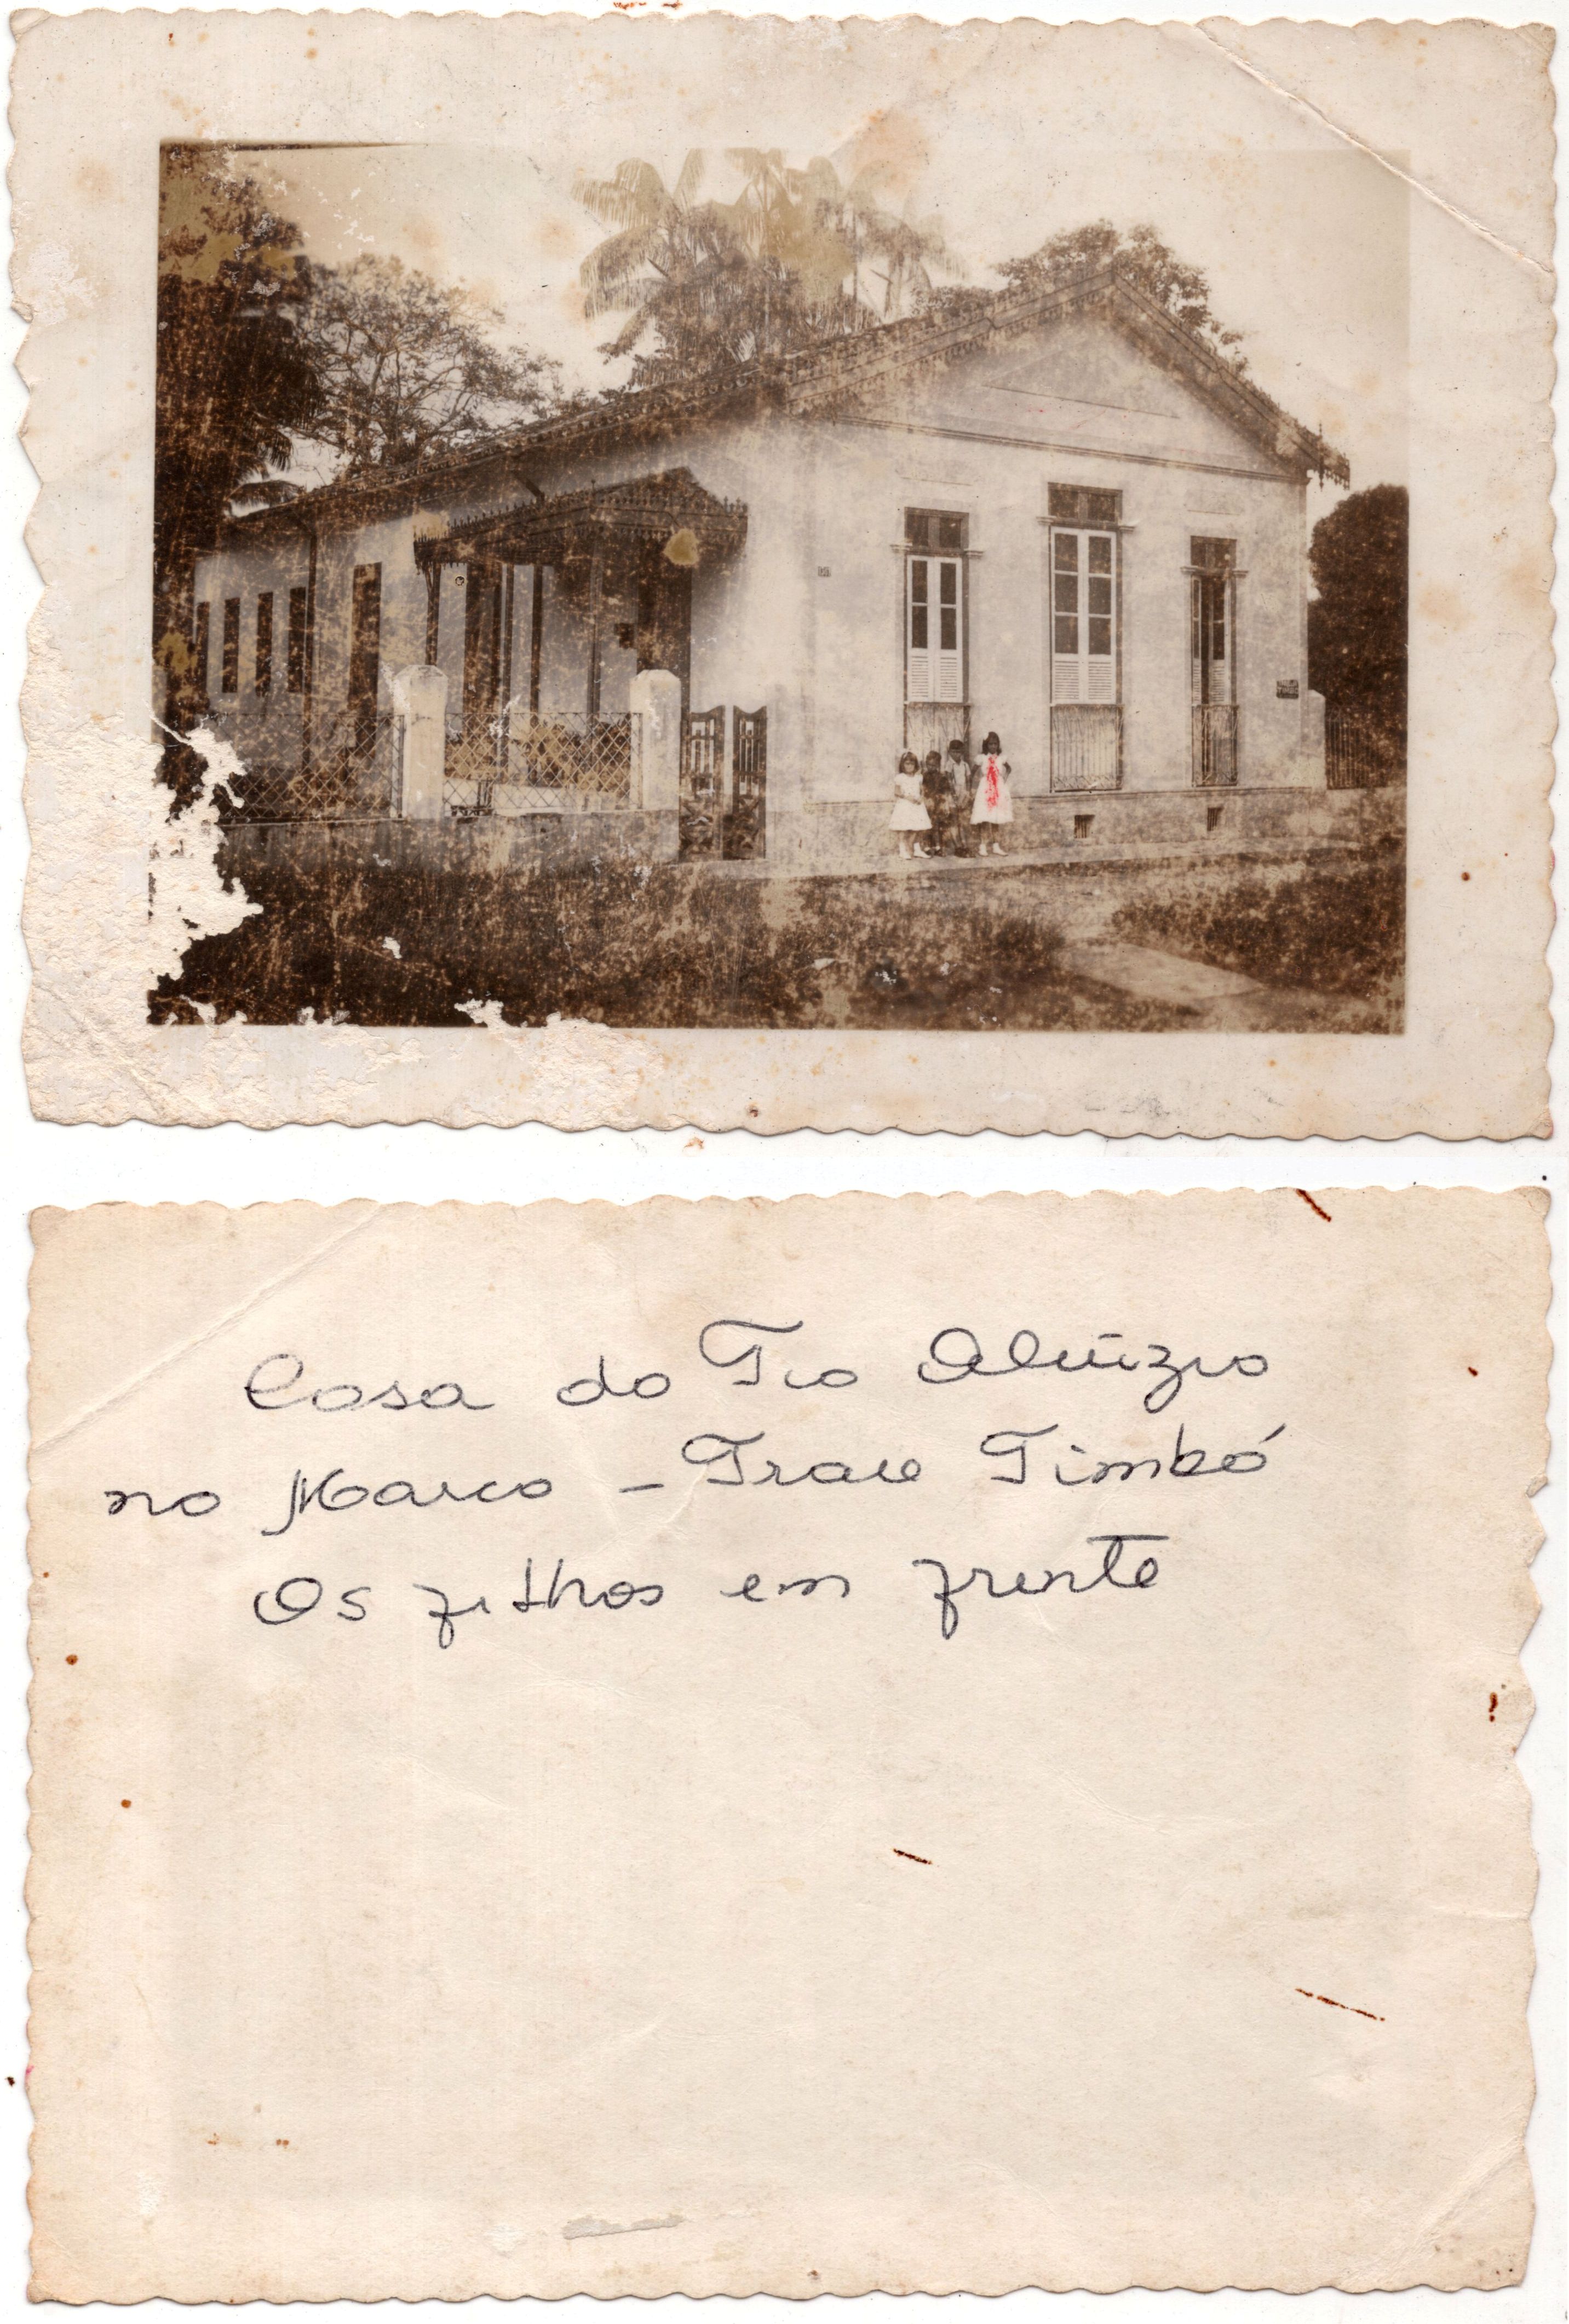 Casa do Tio Aluízio
no Marco - Trav Timbó
Os filhos em frente